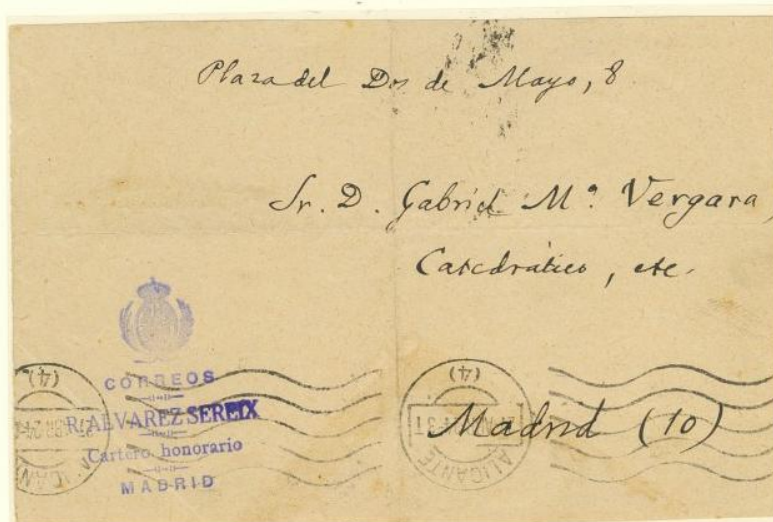 Plaza del Dos de Mayo, 8
Sr. D. Gabriel Mª Vergara,
Catedrático, etc.
CORREOS
R. ALVAREZ SEREIX
Cartero honorario
MADRID
(4)
ALICANTE
(4)
ALICANTE
Madrid (10)